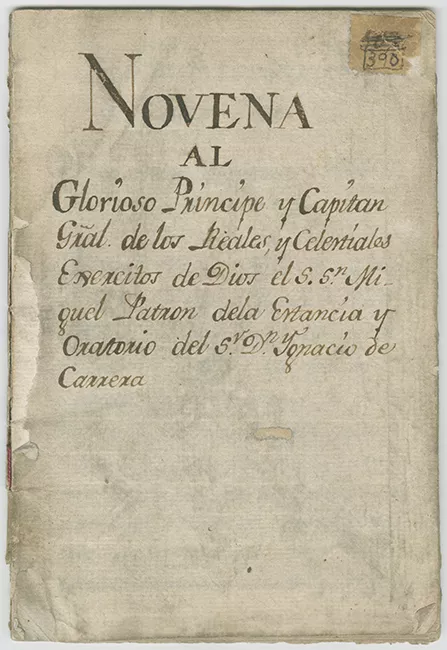 390
NOVENA
AL
Glorioso Principe y Capitan
Grãl. de los Reales, y Celestiales
Exercitos de Dios el S. Sⁿ Mi-
guel Patron dela Estancia y
Oratorio del Sʳ. Dⁿ. Ygnacio de
Carrera